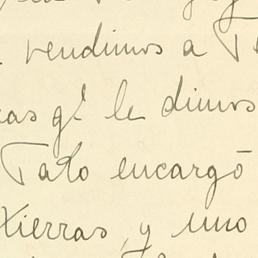 vendimos a
as q! le dimos
Tato encargó
tierras, y uno